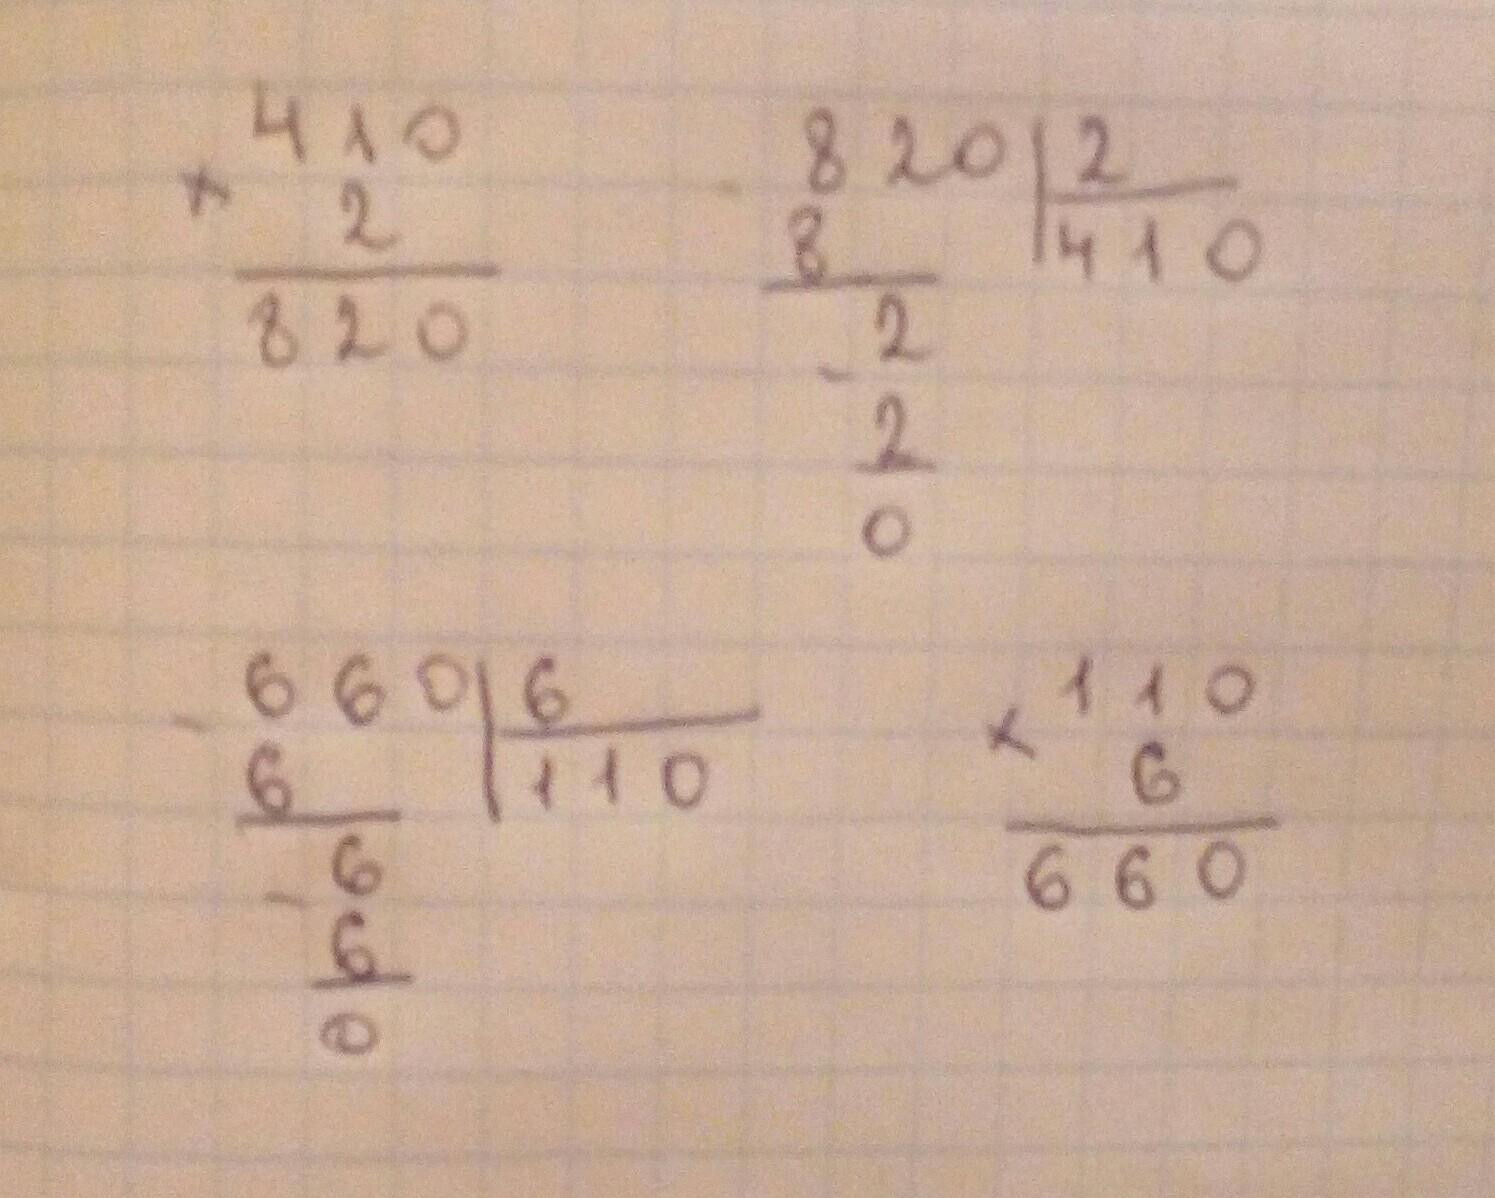 410
× 2
820
- 820 | 2
8 | 410
2
- 2
0
- 660 | 6
6 | 110
6
- 6
0
110
× 6
660